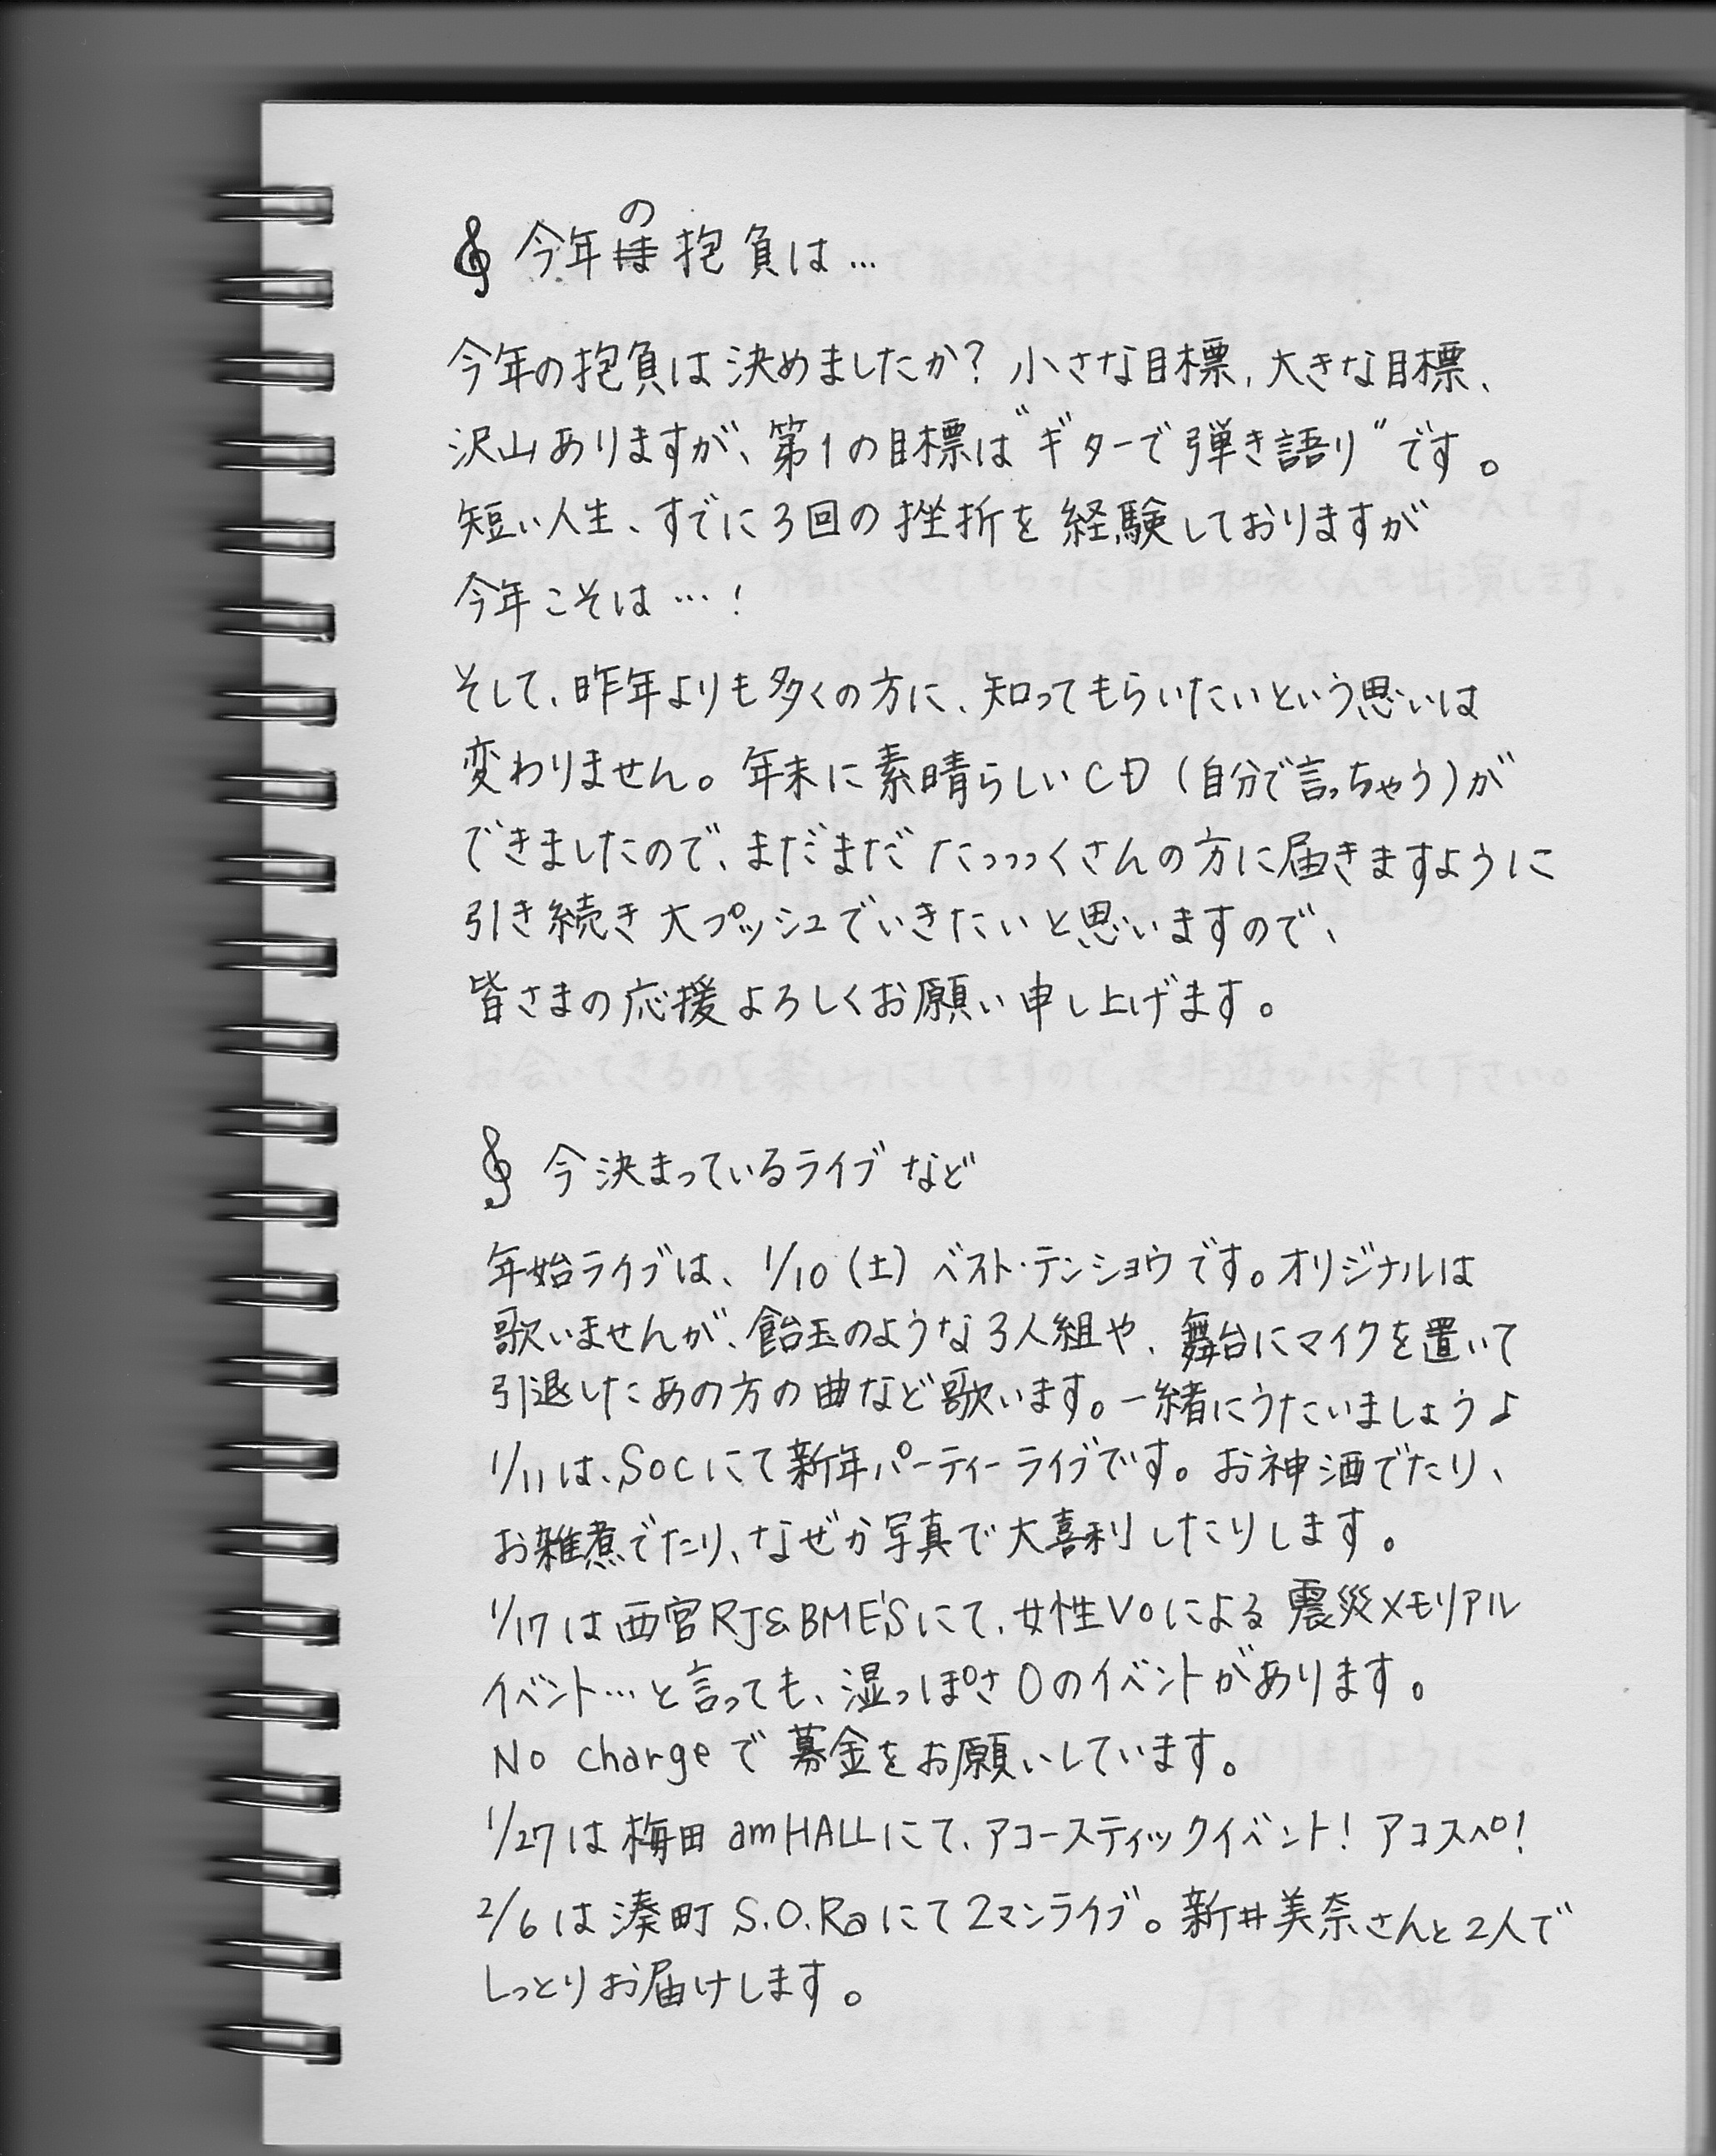 今年の抱負は…
今年の抱負は決めましたか？小さな目標、大きな目標、
沢山ありますが、第1の目標は“ギターで弾き語り”です。
短い人生、すでに3回の挫折を経験しておりますが
今年こそは…！
そして、昨年よりも多くの方に、知ってもらいたいという思いは
変わりません。年末に素晴らしいCD（自分で言っちゃう）が
できましたので、まだまだたっっっくさんの方に届きますように
引き続き大プッシュでいきたいと思いますので、
皆さまの応援よろしくお願い申し上げます。
今決まっているライブなど
年始ライブは、1/10（土）ベスト・テンショウです。オリジナルは
歌いませんが、飴玉のような3人組や、舞台にマイクを置いて
引退したあの方の曲など歌います。一緒にうたいましょう♪
1/11は、Socにて新年パーティーライブです。お神酒でたり、
お雑煮でたり、なぜか写真で大喜利したりします。
1/17は西宮RJ&BME'Sにて、女性Voによる震災メモリアル
イベント…と言っても、湿っぽさ0のイベントがあります。
No chargeで募金をお願いしています。
1/27は梅田amHALLにて、アコースティックイベント！アコスペ！
2/6は湊町S.O.Raにて2マンライブ。新井美奈さんと2人で
しっとりお届けします。